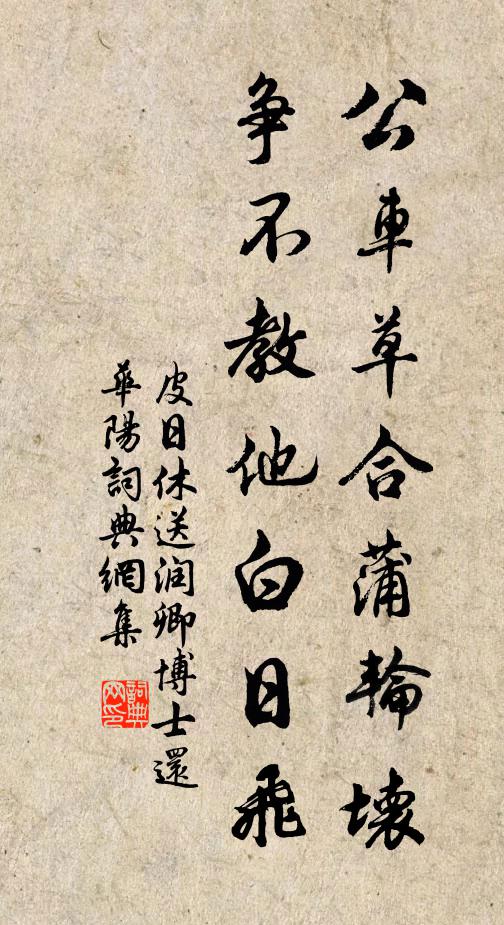 公車草合蒲輪壞
爭不教他白日飛
皮日休送潤卿博士還
華陽詞典網集
詞典網印